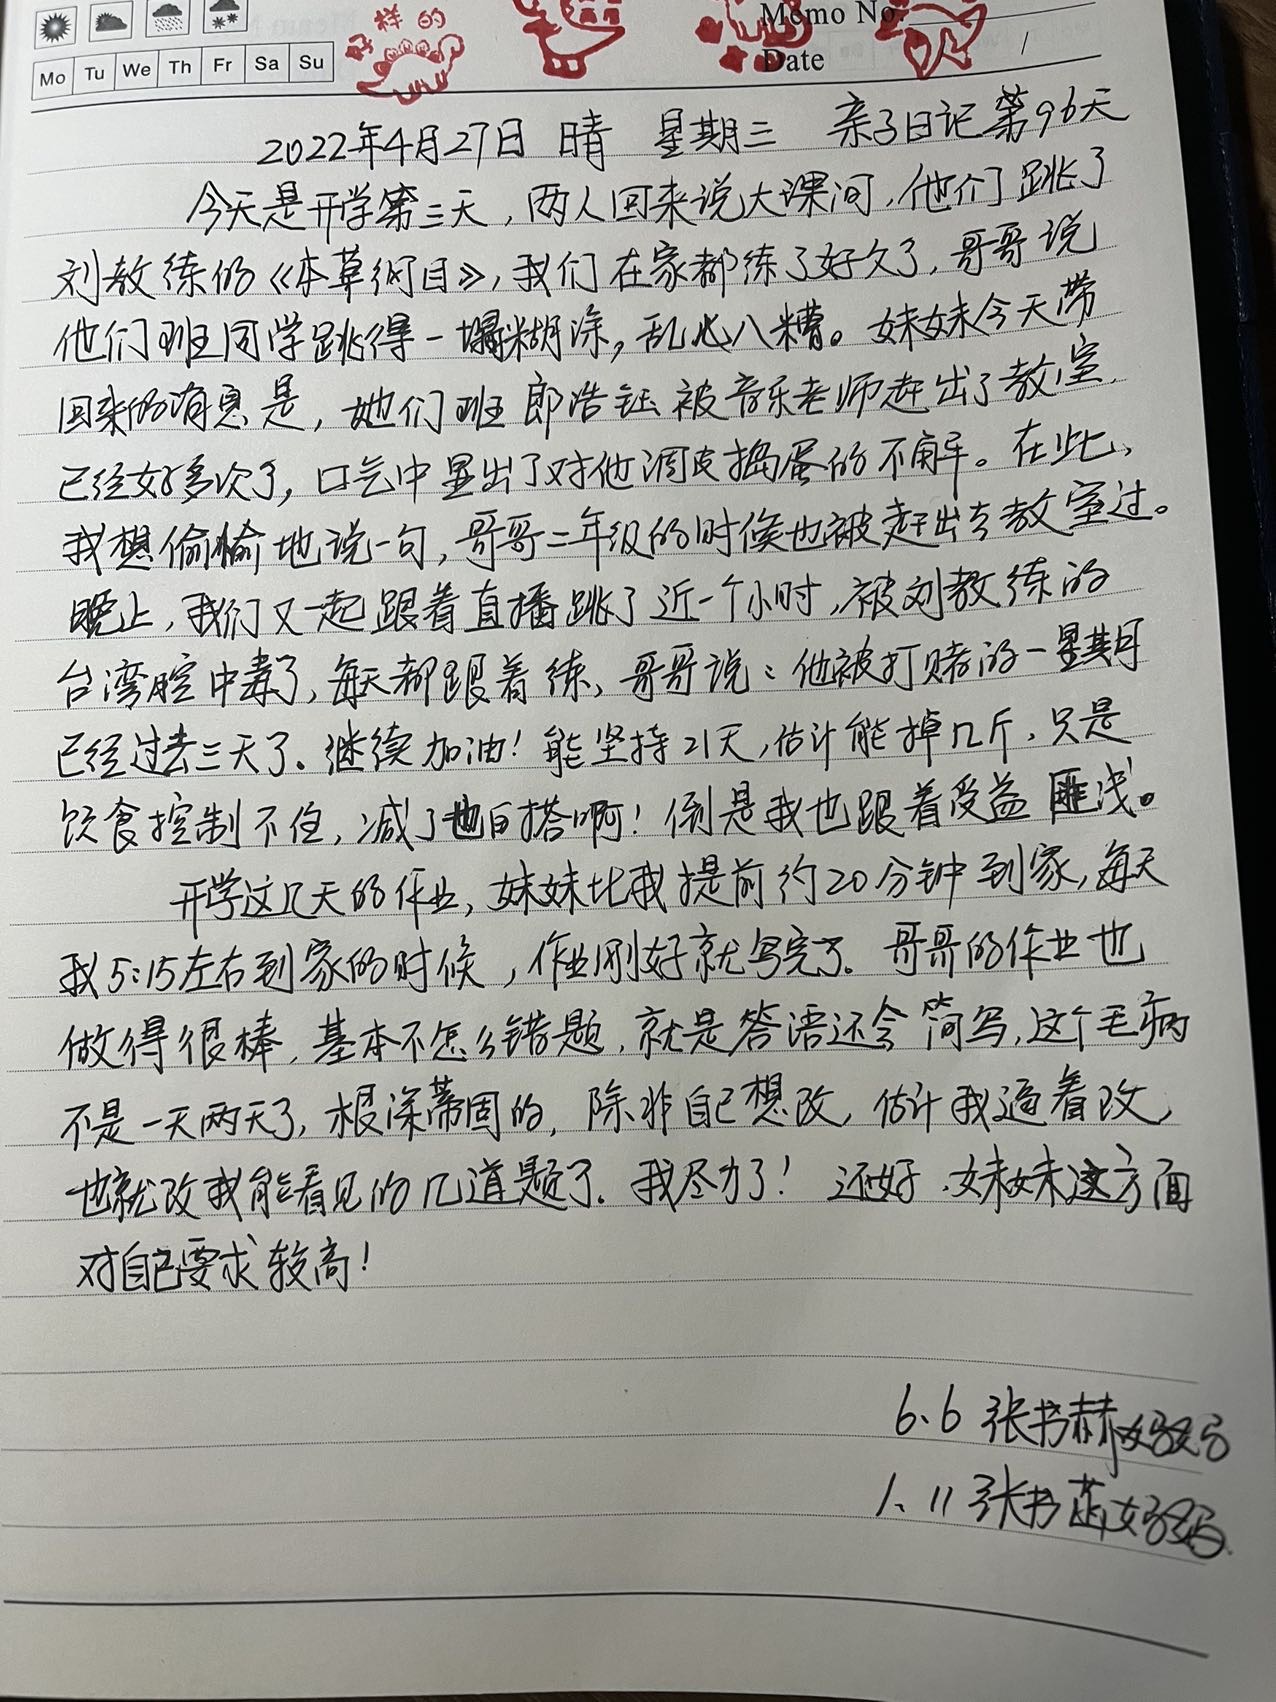 好样的
Memo No.
Mo Tu We Th Fr Sa Su
Date /
2022年4月27日 晴 星期三 亲子日记第96天
今天是开学第三天，两人回来说大课间，他们跳了
刘教练的《本草纲目》，我们在家都练了好久了，哥哥说
他们班同学跳得一塌糊涂，乱七八糟。妹妹今天带
回来的消息是，她们班郎浩钰被音乐老师赶出了教室，
已经好多次了，口气中显出了对他调皮捣蛋的不解。在此，
我想偷偷地说一句，哥哥二年级的时候也被赶出去教室过。
晚上，我们又一起跟着直播跳了近一个小时，被刘教练的
台湾腔中毒了，每天都跟着练，哥哥说：他被打赌的一星期
已经过去三天了。继续加油！能坚持21天，估计能掉几斤，只是
饮食控制不住，减了也白搭啊！倒是我也跟着受益匪浅。
开学这几天的作业，妹妹比我提前约20分钟到家，每天
我5:15左右到家的时候，作业刚好就写完了。哥哥的作业也
做得很棒，基本不怎么错题，就是答语还会简写，这个毛病
不是一天两天了，根深蒂固的，除非自己想改，估计我逼着改，
也就改我能看见的几道题了。我尽力了！还好，妹妹这方面
对自己要求较高！
6.6 张书赫妈妈
1.11 张书芷妈妈